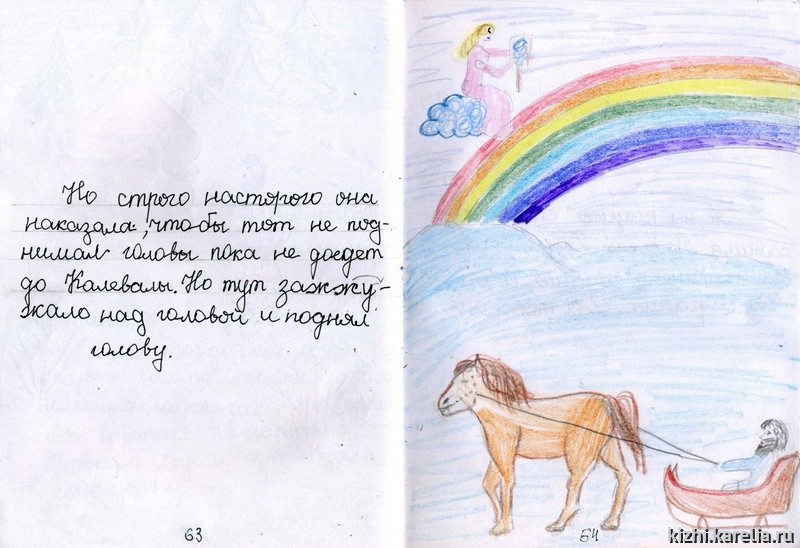 Но строго настрого она
наказала, чтобы тот не под-
нимал головы пока не доедет
до Калевалы. Но тут зажжу-
жжало над головой и поднял
голову.
63
64
kizhi.karelia.ru